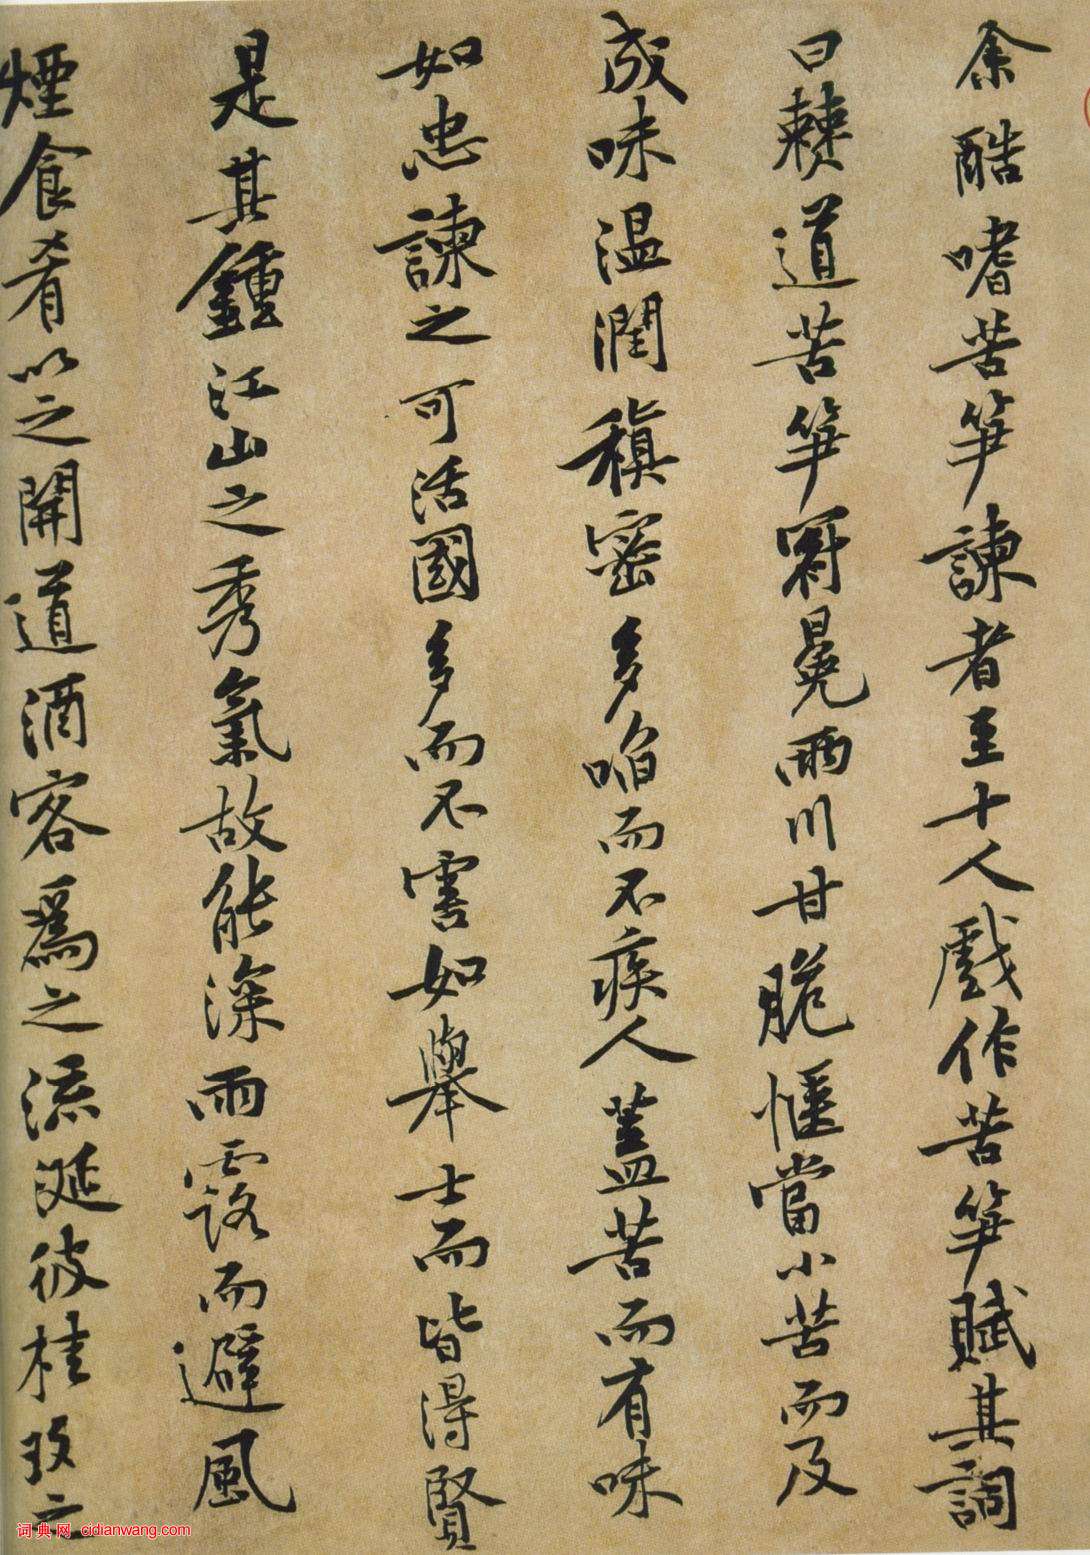 余酷嗜苦笋諫者至十人戲作苦笋賦其詞
曰僰道苦笋冠冕兩川甘脆愜當小苦而及
成味温潤稹密多啗而不疾人蓋苦而有味
如忠諫之可活國多而不害如舉士而皆得賢
是其鍾江山之秀氣故能深雨露而避風
煙食肴以之開道酒客為之流涎彼桂玫之
词典网 cidianwang.com